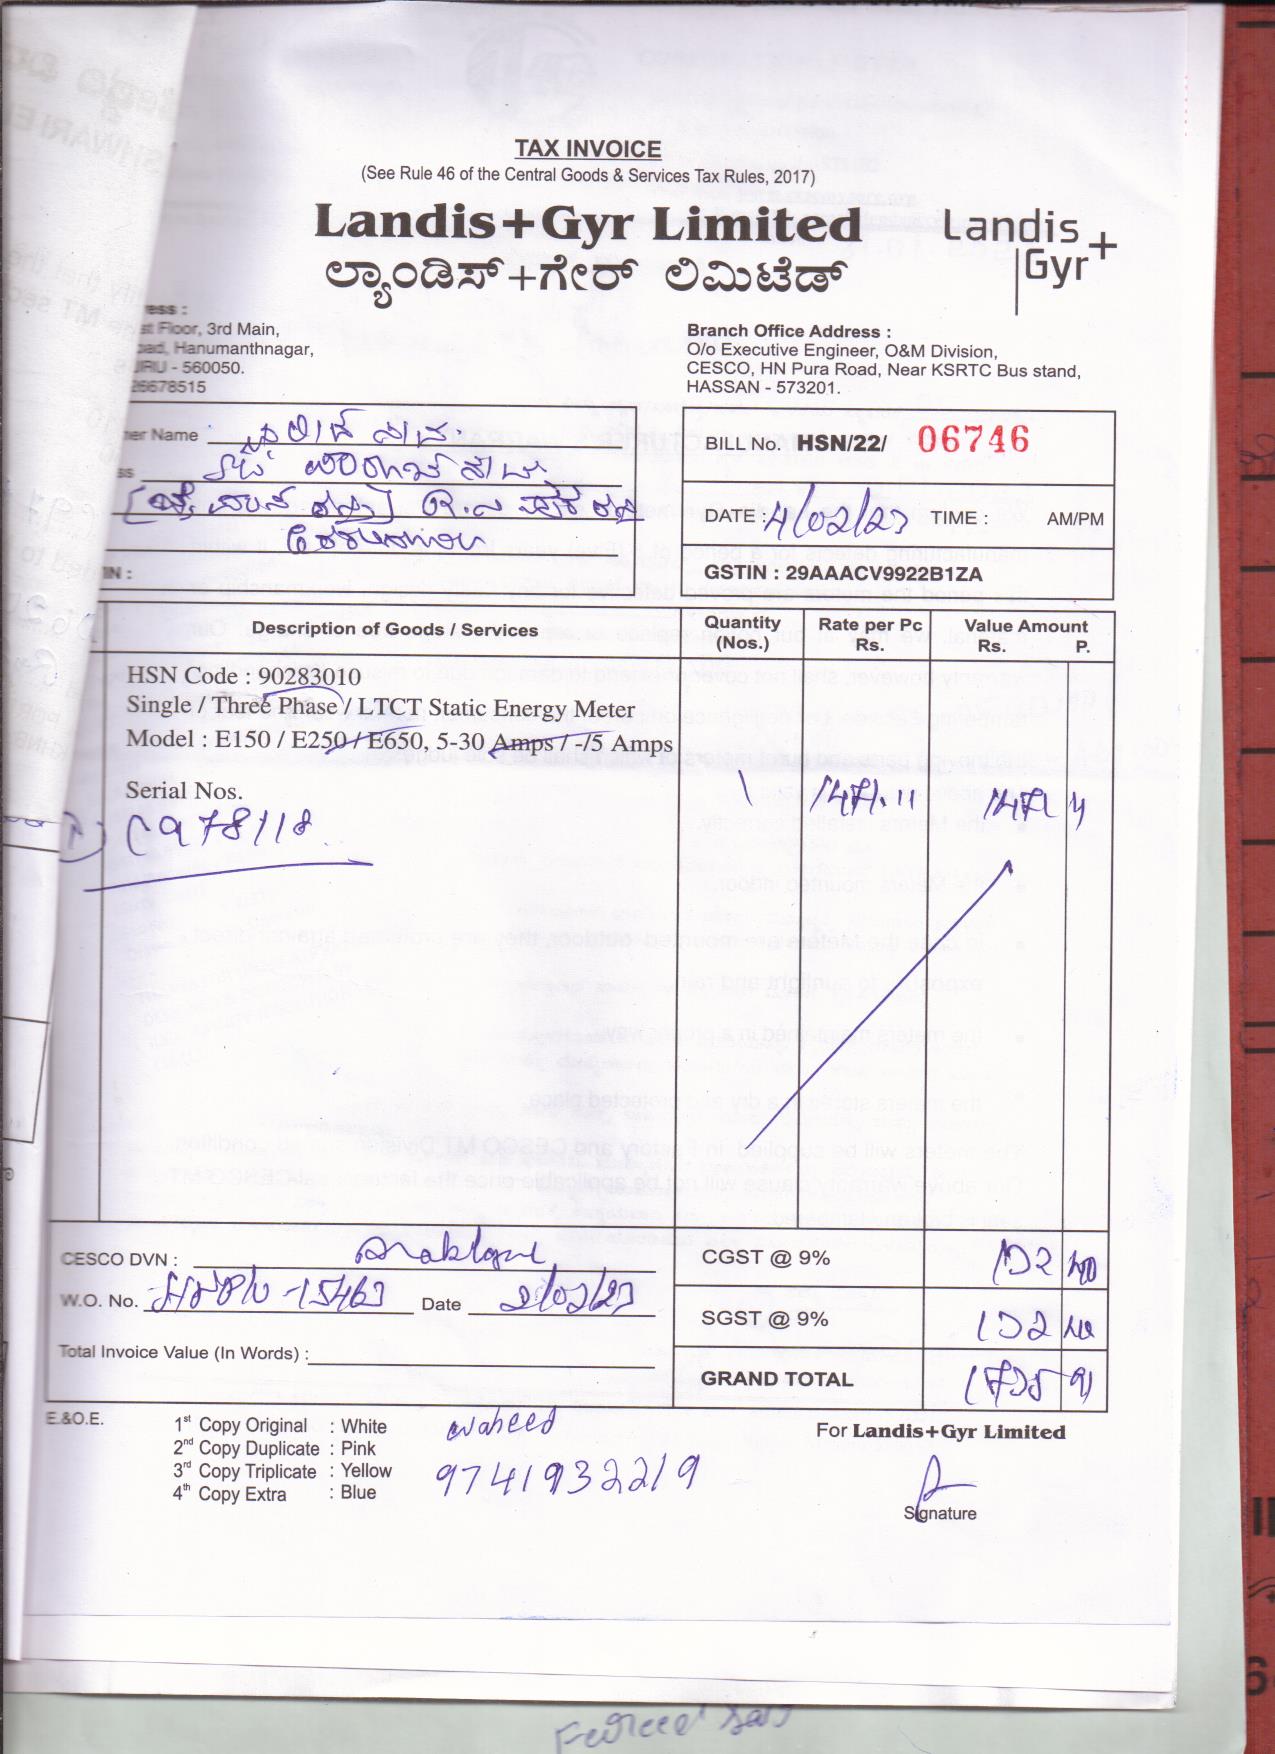 TAX INVOICE
(See Rule 46 of the Central Goods & Services Tax Rules, 2017)
Landis+Gyr Limited
ಲ್ಯಾಂಡಿಸ್+ಗೇರ್ ಲಿಮಿಟೆಡ್
Landis
Gyr+
ress :
st Floor, 3rd Main,
oad, Hanumanthnagar,
URU - 560050.
26678515
Branch Office Address :
O/o Executive Engineer, O&M Division,
CESCO, HN Pura Road, Near KSRTC Bus stand,
HASSAN - 573201.
ner Name
ss
IN :
BILL No. HSN/22/ 06746
DATE : 4/02/23 TIME : AM/PM
GSTIN : 29AAACV9922B1ZA
Description of Goods / Services Quantity (Nos.) Rate per Pc Rs. Value Amount Rs. P.
HSN Code : 90283010
Single / Three Phase / LTCT Static Energy Meter
Model : E150 / E250 / E650, 5-30 Amps / -/5 Amps
Serial Nos. 1 1471.11 1471 11
978118
CESCO DVN :
W.O. No. 15463 Date 2/02/23
Total Invoice Value (In Words) :
CGST @ 9% 132 40
SGST @ 9% 132 40
GRAND TOTAL 1735 91
E.&O.E.
1st Copy Original : White
2nd Copy Duplicate : Pink
3rd Copy Triplicate : Yellow
4th Copy Extra : Blue
Waheed
9741932219
For Landis+Gyr Limited
Signature